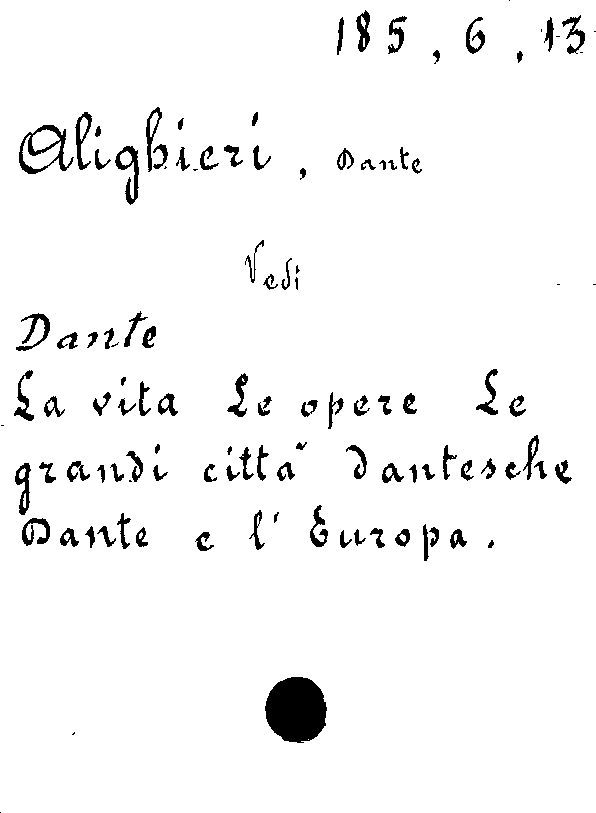 185, 6, 13
Alighieri, Dante
Vedi
Dante
La vita Le opere Le
grandi città dantesche
Dante e l'Europa.